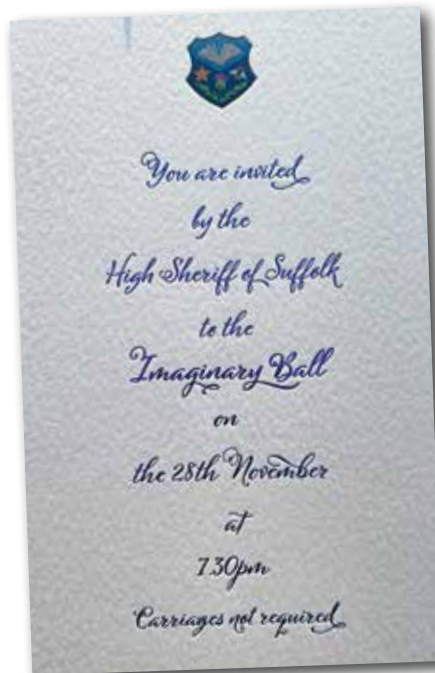 You are invited
by the
High Sheriff of Suffolk
to the
Imaginary Ball
on
the 28th November
at
7.30pm
Carriages not required